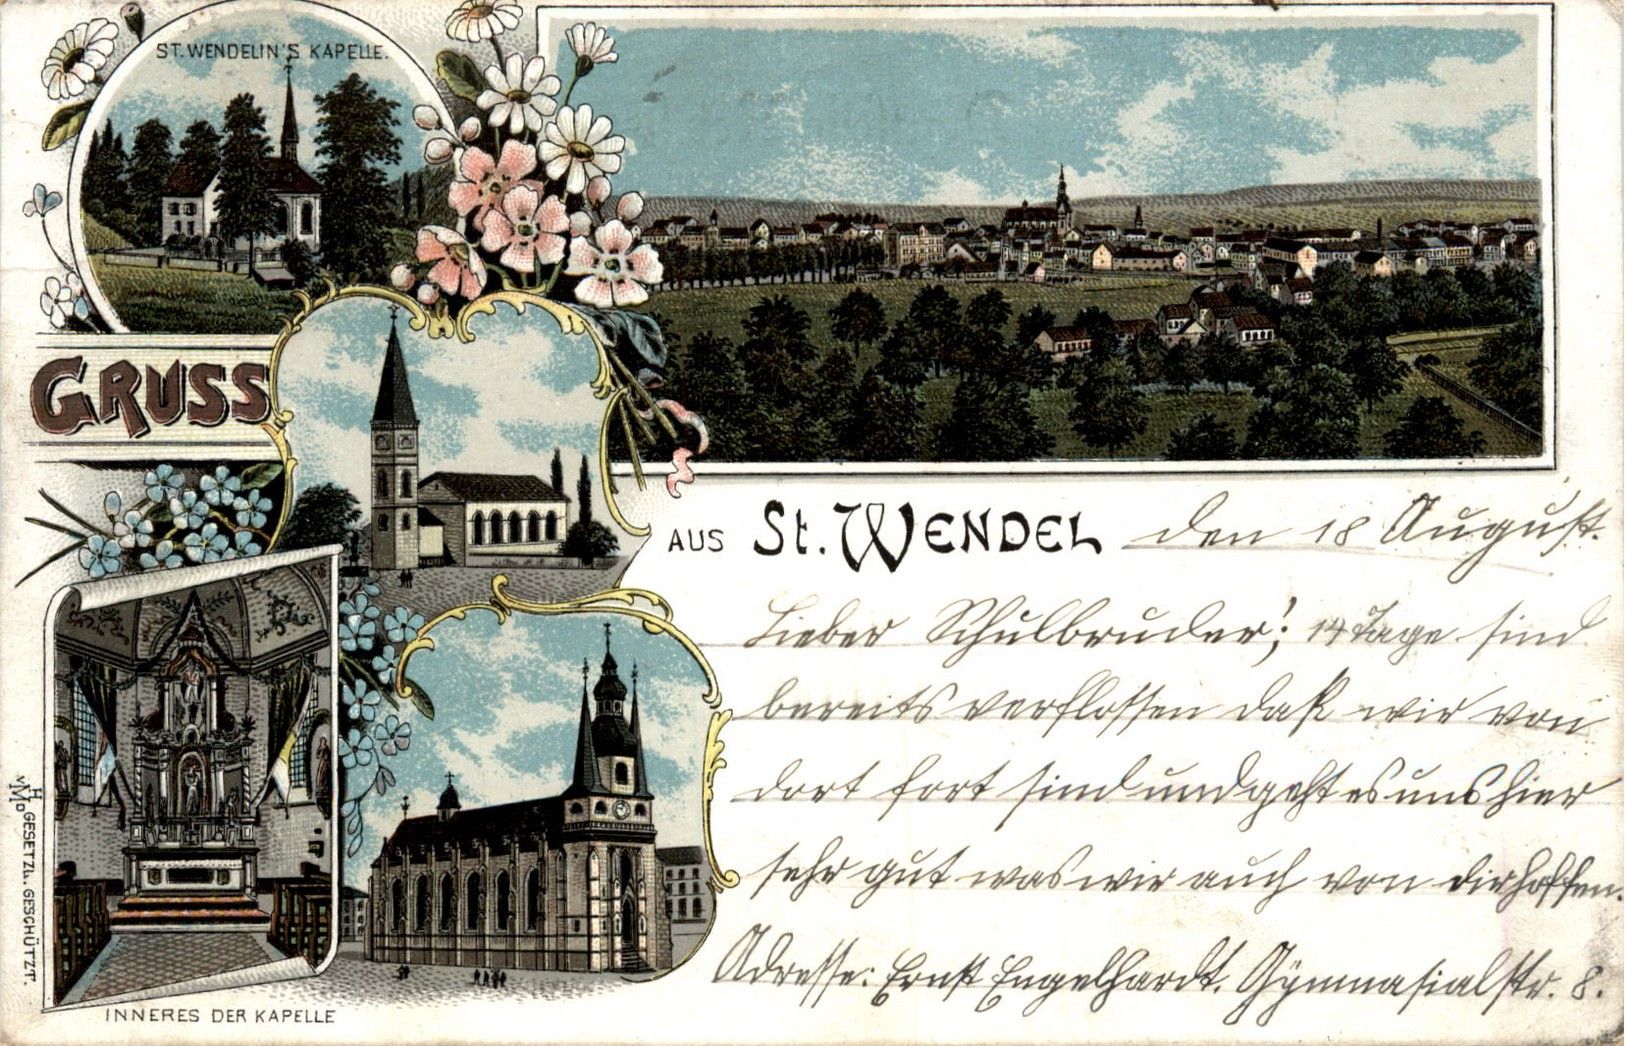 ST. WENDELIN'S KAPELLE.
GRUSS
AUS St. WENDEL
den 18 August.
Lieber Schulbruder! 14 Tage sind
bereits verflossen daß wir von
dort fort sind und geht es uns hier
sehr gut was wir auch von dir hoffen.
Adresse: Ernst Engelhardt. Gymnasialstr. 8.
GESETZL. GESCHÜTZT.
INNERES DER KAPELLE